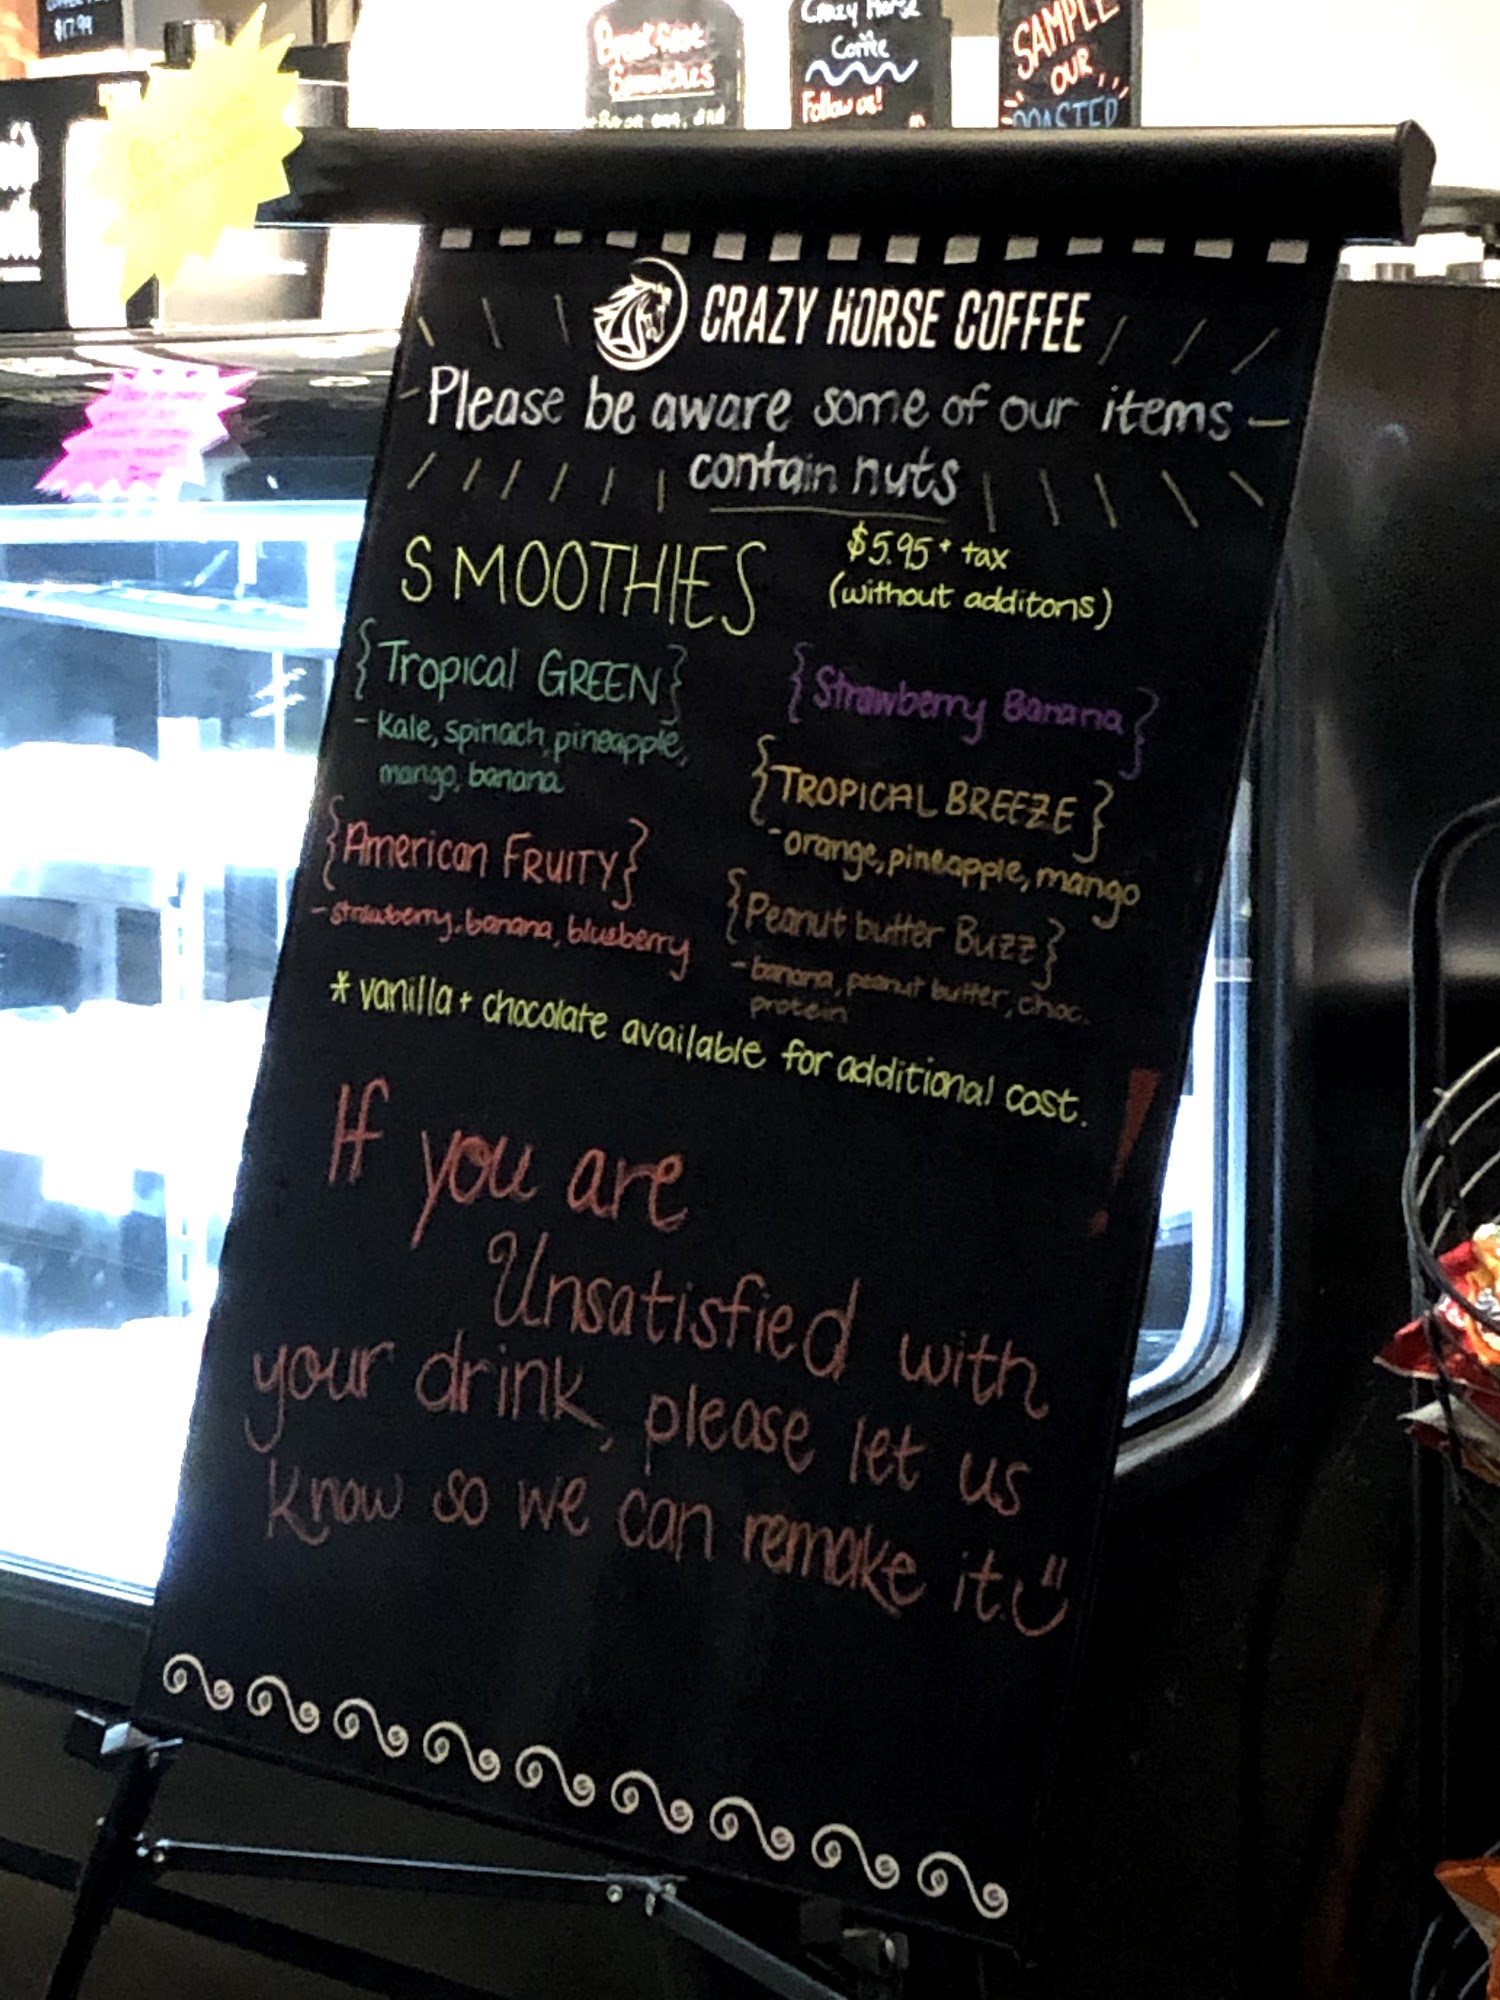 $17.99
Breakfast
Sandwiches
Crazy Horse
Coffee
Follow us!
SAMPLE
OUR
ROASTED
CRAZY HORSE COFFEE
Please be aware some of our items
contain nuts
SMOOTHIES
$5.95 + tax
(without additons)
{Tropical GREEN}
- Kale, spinach, pineapple,
mango, banana
{American FRUITY}
- strawberry, banana, blueberry
{Strawberry Banana}
{TROPICAL BREEZE}
- orange, pineapple, mango
{Peanut butter Buzz}
- banana, peanut butter, choc.
protein
* vanilla + chocolate available for additional cost.
If you are
Unsatisfied with
your drink, please let us
know so we can remake it. !